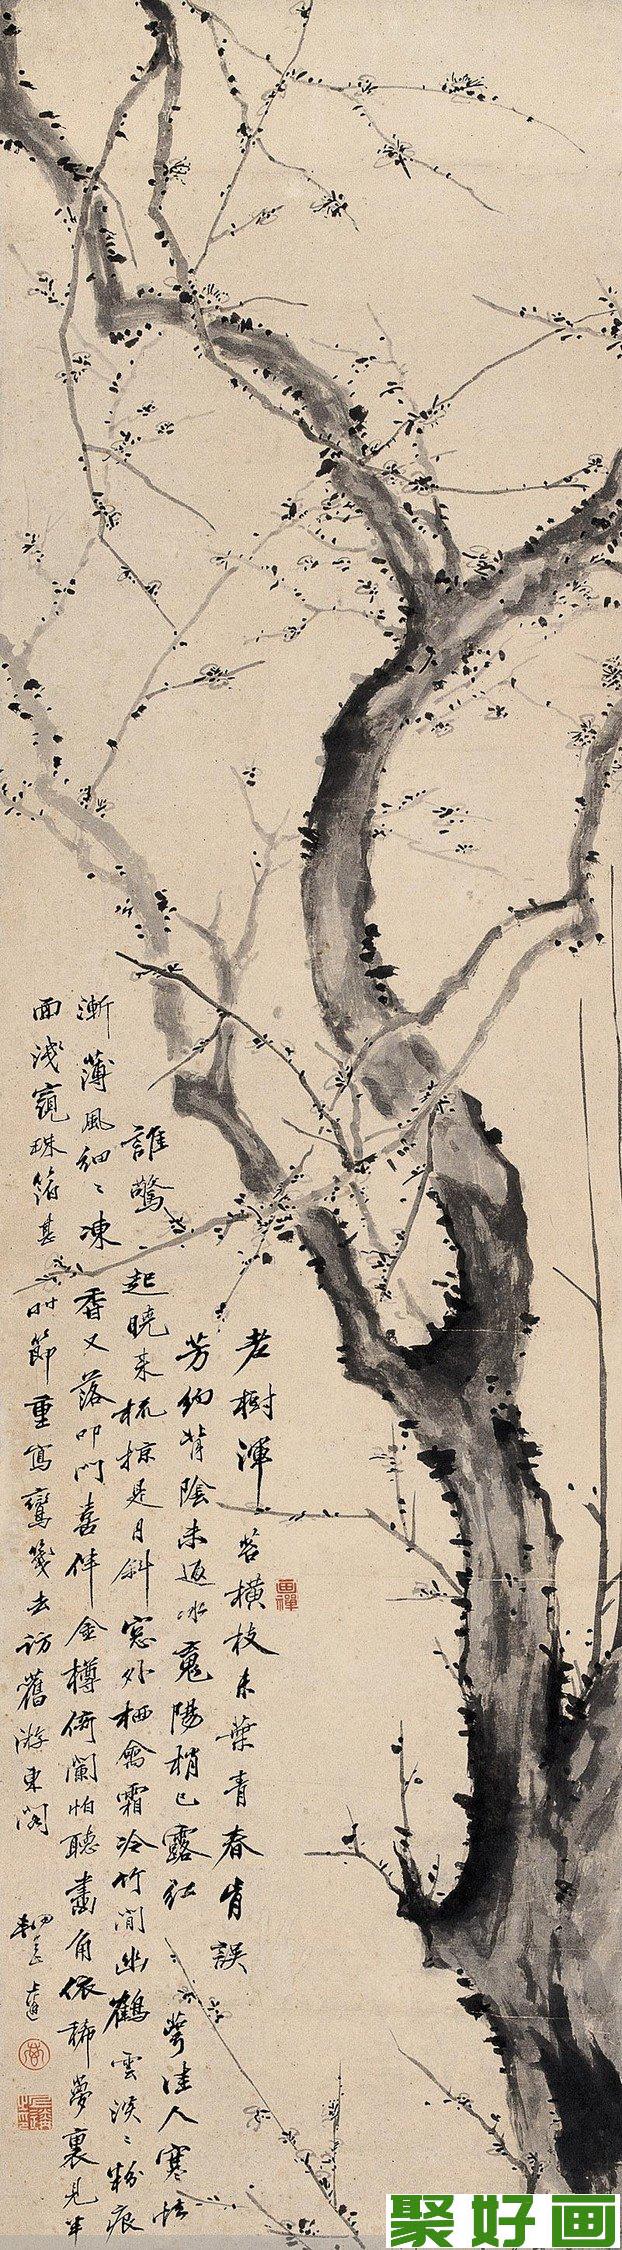 老樹渾苔橫枝未葉青春肯誤
芳約背陰未返冰魂陽梢已露紅萼佳人寒怯
誰驚起曉來梳掠是月斜窓外栖禽霜冷竹間幽鶴雲淡〻粉痕
漸薄風細〻凍香又落叩門喜伴金樽倚闌怕聽畫角依稀夢裏見半
面淺窺珠箔甚時節重寫鸞箋去訪舊游東閣
畫禪
聚好画